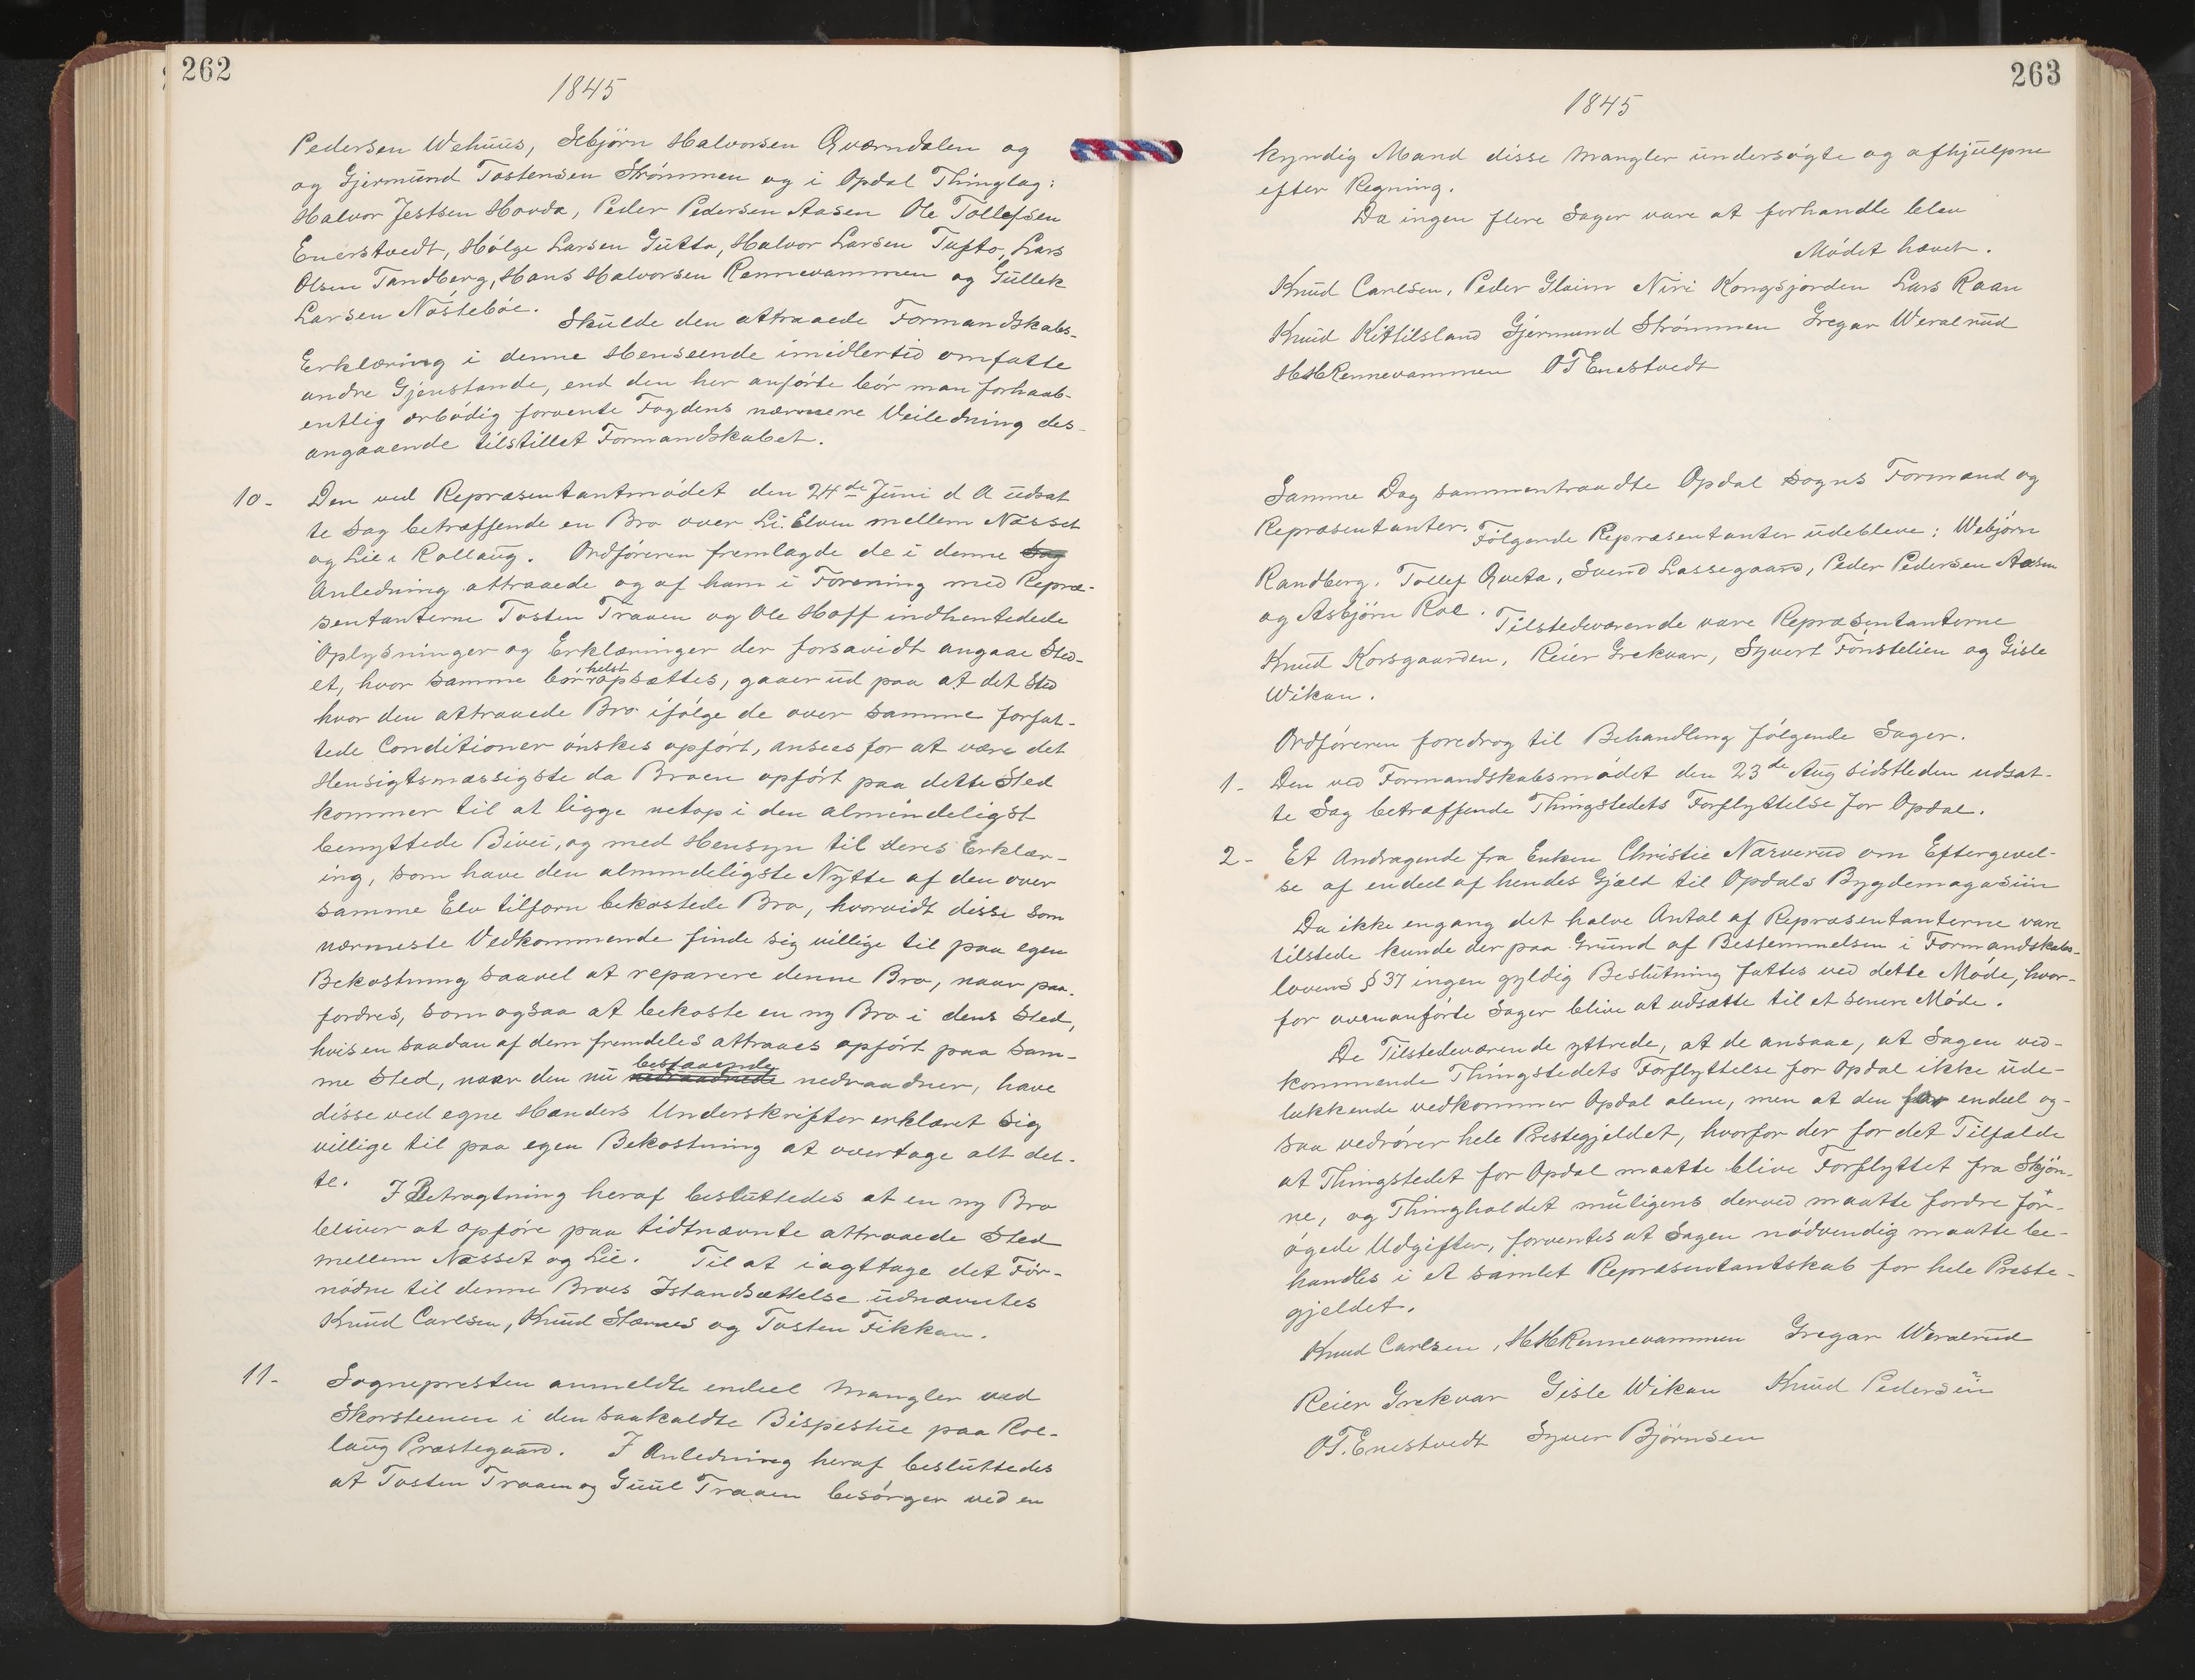 262
1845
Pedersen Wehuus, Asbjörn Halvorsen Qværndalen og
og Gjermund Tostensen Strömmen og i Opdal Thinglag:
Halvor Jestsen Hovda, Peder Pedersen Aasen Ole Tollefsen
Enerstvedt, Hölge Larsen Gutta, Halvor Larsen Tufto, Lars
Olsen Tandberg, Hans Halvorsen Rennevammen og Gullek
Larsen Nösteböe. Skulde den attraaede Formandskabs-
Erklæring i denne Henseende imidlertid omfatte
andre Gjenstande, end den her anförte bör man forhaab-
entlig ærbödig forvente Fogdens nærmere Veiledning des-
angaaende tilstillet Formandskabet.
10- Den ved Repræsentantmödet den 24de Juni d A udsat
te Sag betræffende en Bro over Li. Elven mellem Næsset
og Lie i Rollaug. Ordföreren fremlagde de i denne Sag
Anledning attraaede og af ham i Forening med Repræ-
sentanterne Tosten Traaen og Ole Hoff indhentedede
Oplysninger og Erklæringer der forsavidt angaae Sted-
et, hvor samme bör helst opsættes, gaaer ud paa at det Sted
hvor den attraaede Bro ifölge de over samme forfat-
tede Conditioner önskes opfört, ansees for at være det
Hensigtsmæssigste da Broen opfört paa dette Sted
kommer til at ligge netop i den almindeligst
benyttede Bivei, og med Hensyn til deres Erklær-
ing, som have den almindeligste Nytte af den over
samme Elv tilforn bekostede Bro, hvorvidt disse som
nærmeste Vedkommende finde sig villige til paa egen
Bekostning saavel at reparere denne Bro, naar paa-
fordres, som ogsaa at bekoste en ny Bro i dens Sted,
hvis en saadan af dem fremdeles attraaes opfört paa sam-
me Sted, naar den nu bestaaende nedraadnede nedraadner, have
disse ved egne Hænders Underskrifter erklæret sig
villige til paa egen Bekostning at overtage alt det-
te. I Betragtning heraf besluttedes at en ny Bro
bliver at opföre paa tidtnævnte attraaede Sted
mellem Næsset og Lie. Til at iagttage det For-
nödne til denne Broes Istandsættelse udnævntes
Knud Carlsen, Knud Stærnes og Tosten Fikkan.
11- Sognepresten anmeldte endeel Mangler ved
Skorsteenen i den saakaldte Bispestue paa Rol-
laug Præstegaard. I Anledning heraf besluttedes
at Tosten Traaen og Guul Traaen besörger ved en
263
1845
kyndig Mand disse Mangler undersögte og afhjulpne
efter Regning.
Da ingen flere Sager vare at forhandle blev
Mödet hævet.
Knud Carlsen, Peder Glaim Niri Kongsjorden Lars Raan
Knud Kittilsland Gjermund Strömmen Gregar Weralrud
HHRennevammen OTEnestvedt
Samme Dag sammentraadte Opdal Sogns Formænd og
Repræsentanter. Fölgende Repræsentanter udebleve: Webjörn
Randberg, Tollef Qveta, Svend Lassegaard, Peder Pedersen Aasen
og Asbjörn Roe. Tilstedeværende vare Repræsentanterne
Knud Korsgaarden, Reier Grekvar, Syvert Fönstelien og Gisle
Wikan.
Ordföreren foredrog til Behandling fölgende Sager.
1- Den ved Formandskabsmödet den 23de Aug sidstleden udsat-
te Sag betræffende Thingstedets Forflyttelse for Opdal.
2- Et Andragende fra Enken Christie Narverud om Eftergivel-
se af en deel af hendes Gjæld til Opdals Bygdemagasiin
Da ikke engang det halve Antal af Repræsentanterne vare
tilstede kunde der paa Grund af Bestemmelsen i Formandskabs-
lovens § 37 ingen gyldig Beslutning fattes ved dette Möde, hvor-
for ovenanförte Sager blive at udsætte til et senere Möde.
De Tilstedeværende yttrede, at de ansaae, at Sagen ved-
kommende Thingstedets Forflyttelse for Opdal ikke ude-
lukkende vedkommer Opdal alene, men at den for endeel og-
saa vedrörer hele Prestegjeldet, hvorfor der for det Tilfælde
at Thingstedet for Opdal maatte blive Forflyttet fra Skjön-
ne, og Thingholdet muligens derved maatte fordre for-
ögede Udgifter, forventes at Sagen nödvendig maatte be-
handles i et samlet Repræsentantskab for hele Preste-
gjeldet.
Knud Carlsen, HHRennevammen Gregar Weralrud
Reier Grekvar Gisle Wikan Knud Pedersen
OT. Enestvedt Syver Björnsen